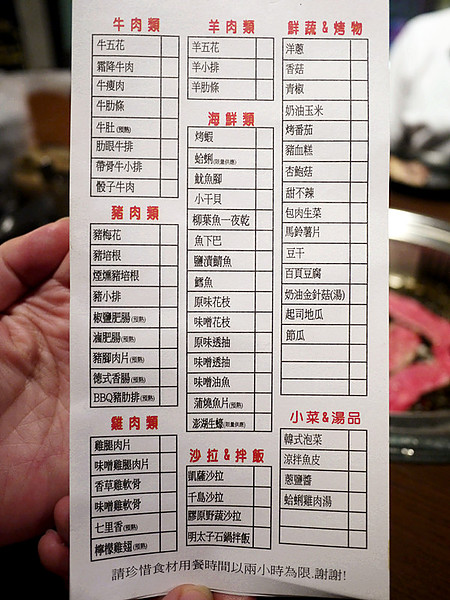 牛肉類
牛五花
霜降牛肉
牛瘦肉
牛肋條
牛肚(預熟)
肋眼牛排
帶骨牛小排
骰子牛肉
豬肉類
豬梅花
豬培根
煙燻豬培根
豬小排
椒鹽肥腸(預熟)
滷肥腸(預熟)
豬腳肉片(預熟)
德式香腸(預熟)
BBQ豬肋排(預熟)
雞肉類
雞腿肉片
味噌雞腿肉片
香草雞軟骨
味噌雞軟骨
七里香(預熟)
檸檬雞翅(預熟)
羊肉類
羊五花
羊小排
羊肋條
海鮮類
烤蝦
蛤蜊(限量供應)
魷魚腳
小干貝
柳葉魚一夜乾
魚下巴
鹽漬鯖魚
鱈魚
原味花枝
味噌花枝
原味透抽
味噌透抽
味噌油魚
蒲燒魚片(預熟)
澎湖生蠔(限量供應)
沙拉&拌飯
凱薩沙拉
千島沙拉
膠原野蔬沙拉
明太子石鍋拌飯
鮮蔬&烤物
洋蔥
香菇
青椒
奶油玉米
烤番茄
豬血糕
杏鮑菇
甜不辣
包肉生菜
馬鈴薯片
豆干
百頁豆腐
奶油金針菇(湯)
起司地瓜
節瓜
小菜&湯品
韓式泡菜
涼拌魚皮
蔥鹽醬
蛤蜊雞肉湯
請珍惜食材用餐時間以兩小時為限.謝謝!